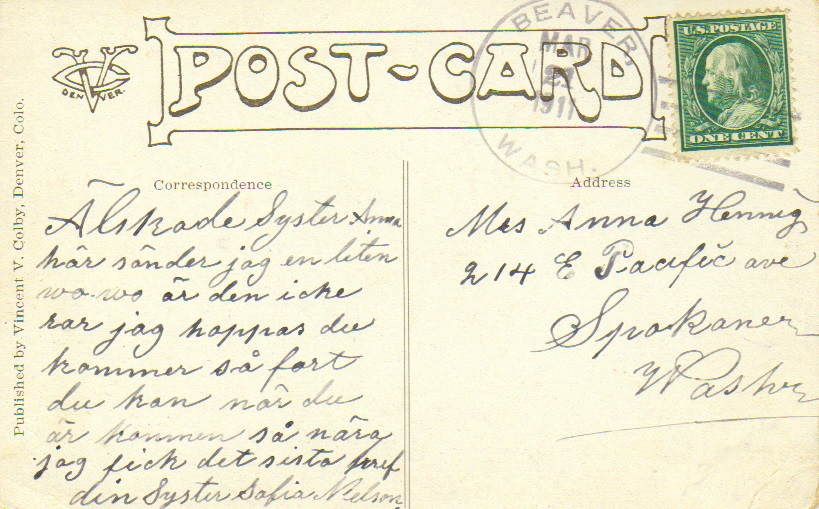 POST-CARD
DEN VER.
BEAVER,
MAR
1911
WASH.
U.S. POSTAGE
ONE CENT
Published by Vincent V. Colby, Denver, Colo.
Correspondence
Älskade Syster Anna
här sänder jag en liten
wo-wo är den icke
rar jag hoppas du
kommer så fort
du kan når du
är kommen så nära
jag fick det sista bref
din Syster Sofia Nelson
Address
Mrs Anna Hennig
214 E Pacific ave
Spokane
Wash